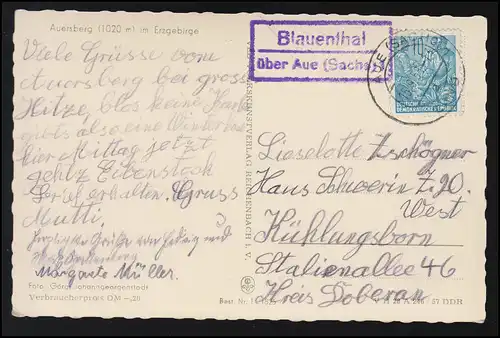 Auersberg (1020 m) im Erzgebirge
Viele Grüsse vom
Auersberg bei gross
Hitze, blos keine
gibts also eine Winter
hier Mittag jetzt
gehts Eibenstock
Brief erhalten. Gruss
Mutti.
Herzliche Grüße von und
Margarete Müller.
Foto: Johanngeorgenstadt
Verbraucherpreis DM -,20
Blauenthal
über Aue (Sachs)
REICHENBACH I. V.
DEUTSCHE
DEMOKRATISCHE REPUBLIK
Lieselotte Zschögner
Haus Schwerin Z. 20.
West
Kühlungsborn
Stalienallee 46
Kreis Doberan
Best. Nr.
57 DDR